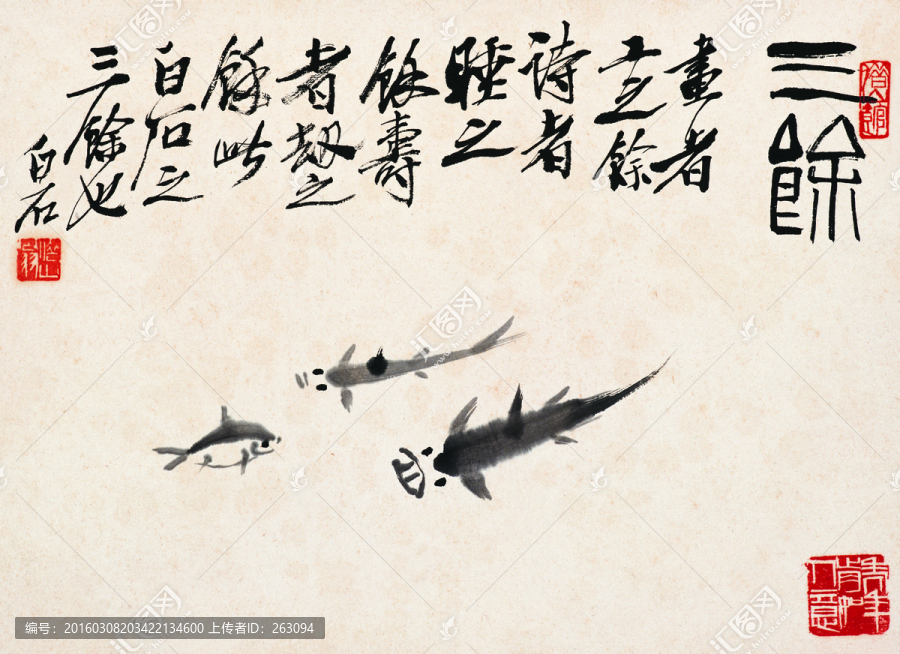 三餘
畫者
工之餘
詩者
睡之
餘壽
者劫之
餘此
白石之
三餘也
白石
编号：20160308203422134600 上传者ID：263094